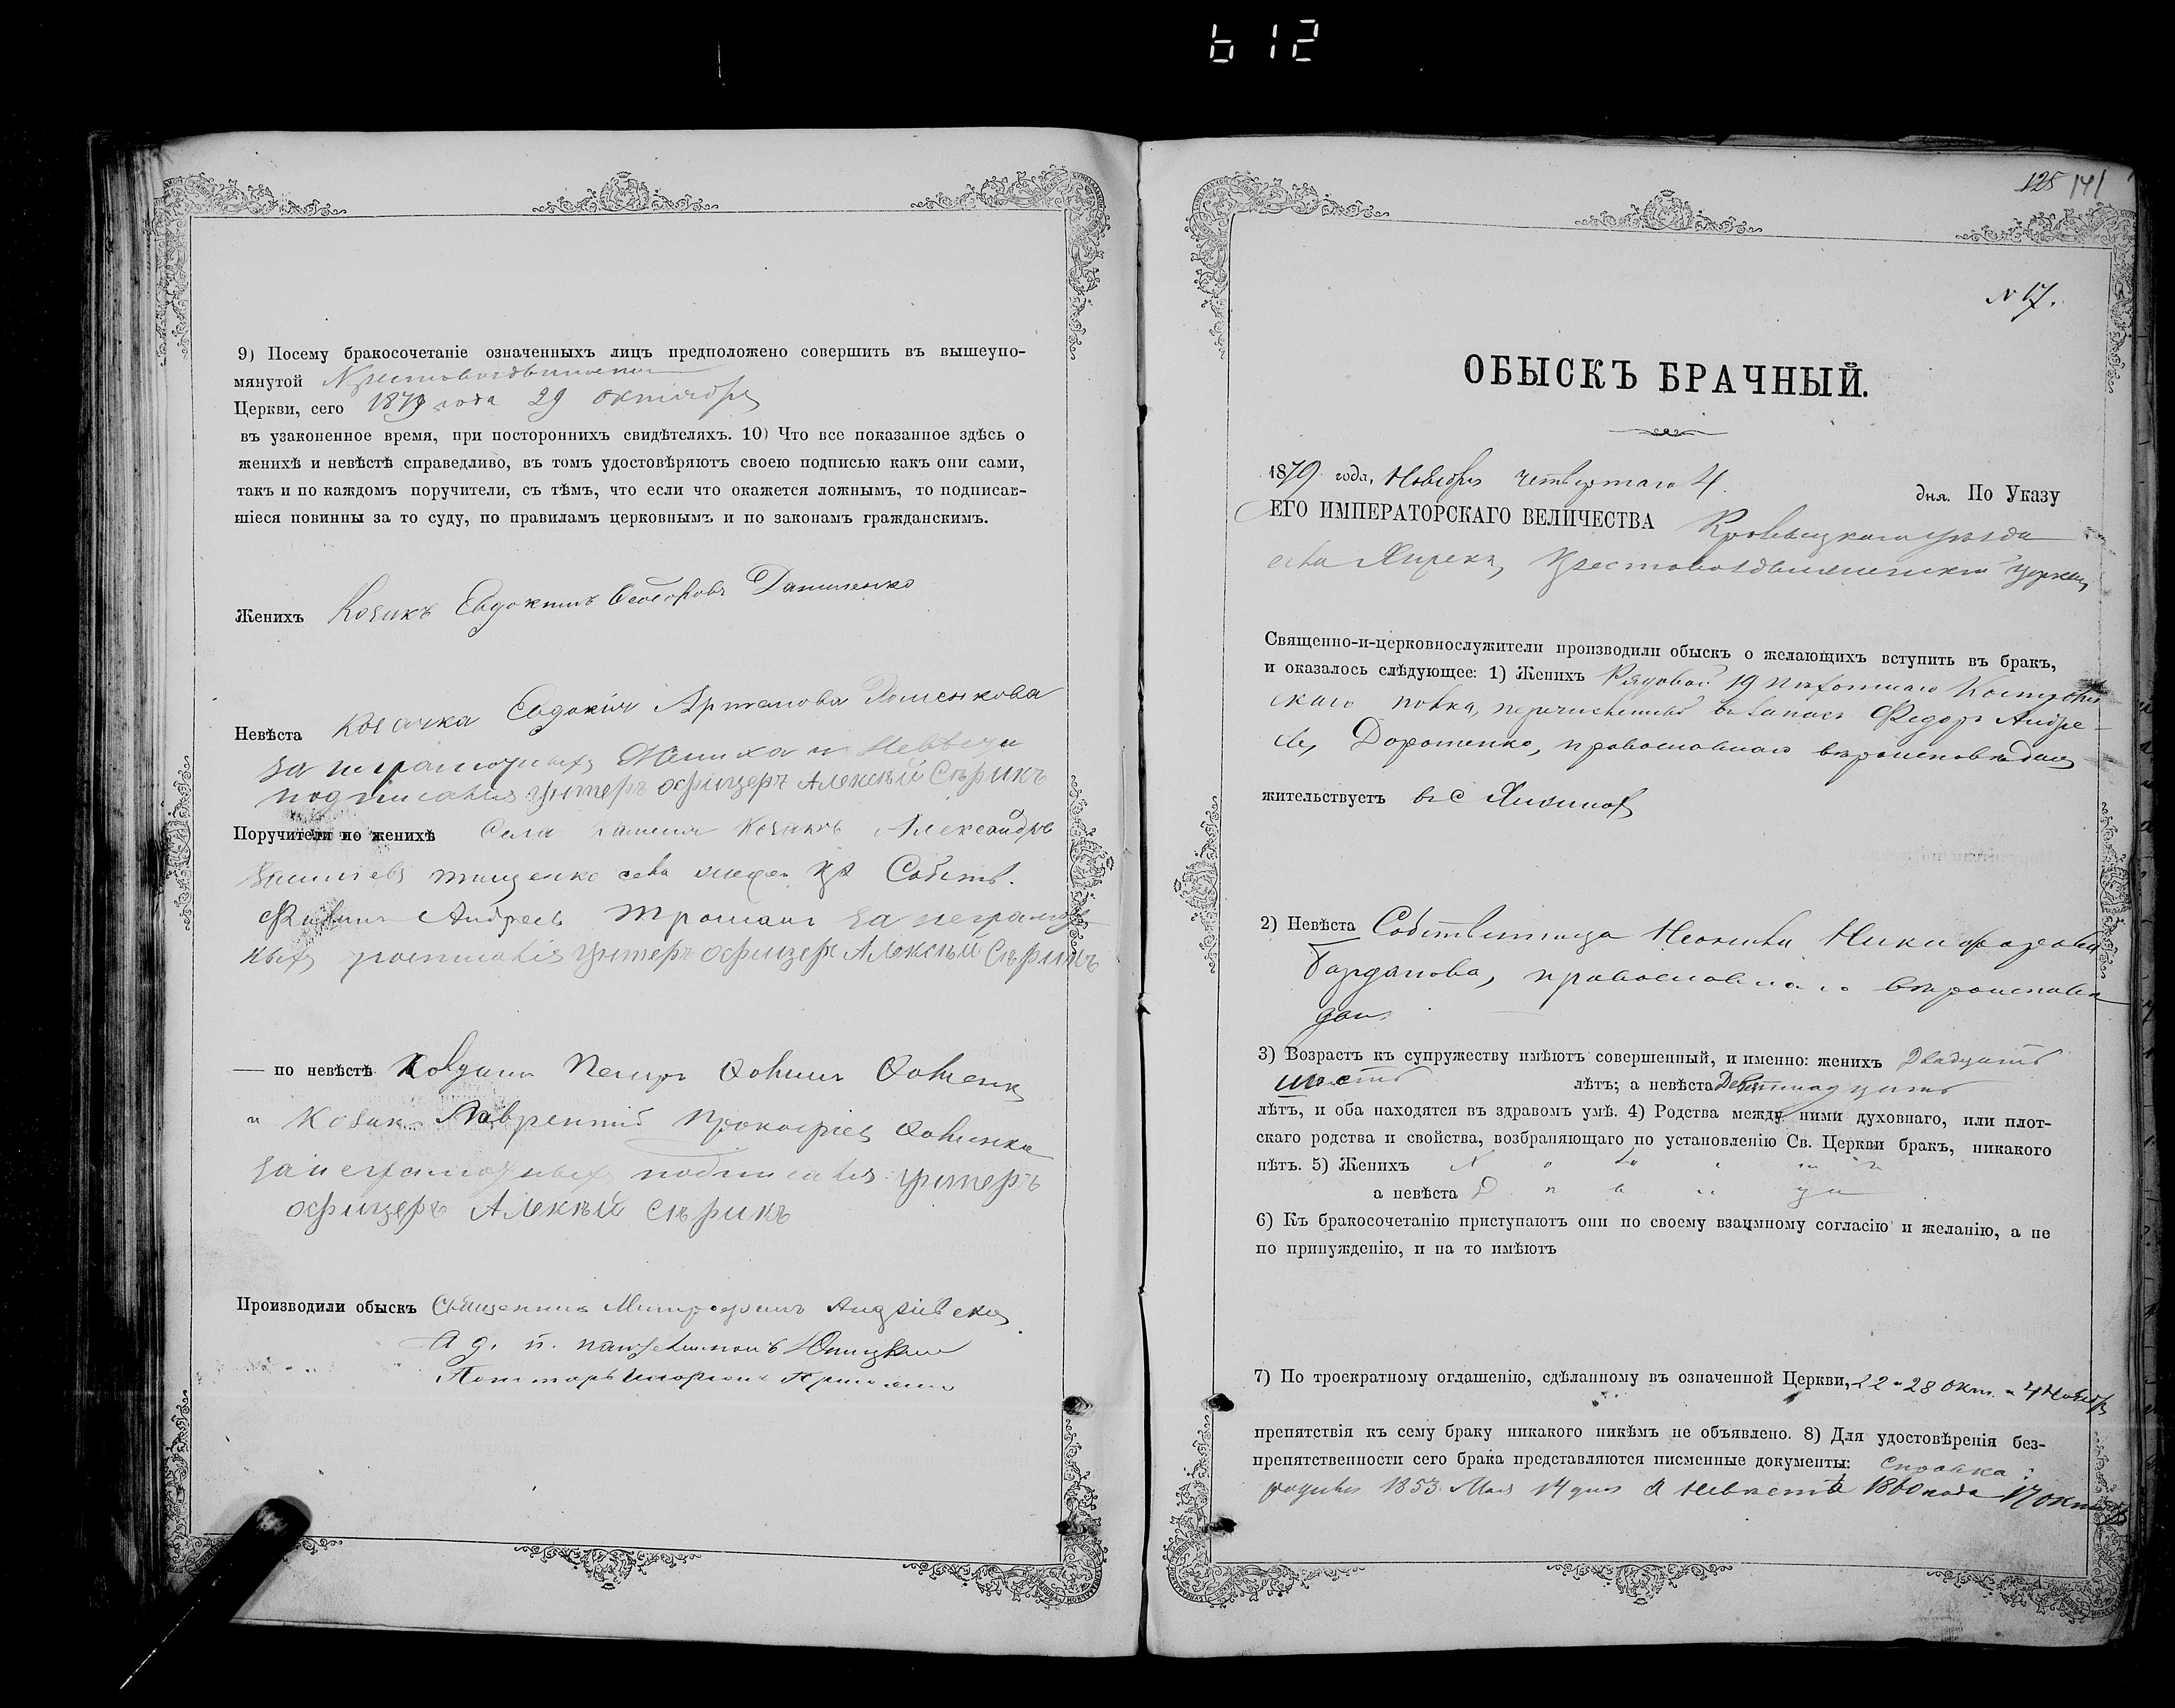 612
9) Посему бракосочетаніе означенныхъ лицъ предположено совершить въ вышеупо-
мянутой
Церкви, сего 1879 года 29 октября
въ узаконенное время, при постороннихъ свидѣтеляхъ. 10) Что все показанное здѣсь о
женихѣ и невѣстѣ справедливо, въ томъ удостовѣряютъ своею подписью какъ они сами,
такъ и по каждомъ поручители, съ тѣмъ, что если что окажется ложнымъ, то подписав-
шіеся повинны за то суду, по правиламъ церковнымъ и по законамъ гражданскимъ.
Женихъ Козакъ Евдокимъ Ѳеодоровъ Даниленко
Невѣста Козачка Евдокія
за неграмотныхъ Жениха и Невѣсту
подписался унтеръ офицеръ Алексѣй Сѣрикъ
Поручители по женихѣ Села Козакъ Александръ
тищенко
Андреевъ за неграмот
ныхъ унтеръ офицеръ Алексѣй Сѣрикъ
— по невѣстѣ Петръ
и Козакъ Лаврентій Прокофіевъ
за неграмотныхъ подписался унтеръ
офицеръ Алексѣй Сѣрикъ
Производили обыскъ Священникъ Митрофанъ
125 141
N 17.
ОБЫСКЪ БРАЧНЫЙ.
1879 года, Ноября четвертаго 4 дня. По Указу
ЕГО ИМПЕРАТОРСКАГО ВЕЛИЧЕСТВА Кролевецкаго уѣзда
села Крестовоздвиженской церкви
Священно-и-церковнослужители производили обыскъ о желающихъ вступить въ бракъ,
и оказалось слѣдующее: 1) Женихъ Рядовой 19 пѣхотнаго Костромс
скаго полка, перечисленный въ запасъ Федоръ Андре-
евъ Дорошенко, православнаго вѣроисповѣданія
жительствуетъ въ с
2) Невѣста Собственница Никифорова
православнаго вѣроисповѣ
данія
3) Возрастъ къ супружеству имѣютъ совершенный, и именно: женихъ Двадцать
шесть лѣтъ; а невѣста Девятнадцать
лѣтъ, и оба находятся въ здравомъ умѣ. 4) Родства между ними духовнаго, или плот-
скаго родства и свойства, возбраняющаго по установленію Св. Церкви бракъ, никакого
нѣтъ. 5) Женихъ
а невѣста
6) Къ бракосочетанію приступаютъ они по своему взаимному согласію и желанію, а не
по принужденію, и на то имѣютъ
7) По троекратному оглашенію, сдѣланному въ означенной Церкви, 22 и 28 окт. и 4 Ноябр
препятствія къ сему браку никакого никѣмъ не объявлено. 8) Для удостовѣренія без-
препятственности сего брака представляются писменные документы: справка
родился 1853 Мая 14 дня а невѣста 1860 года 17 октяб